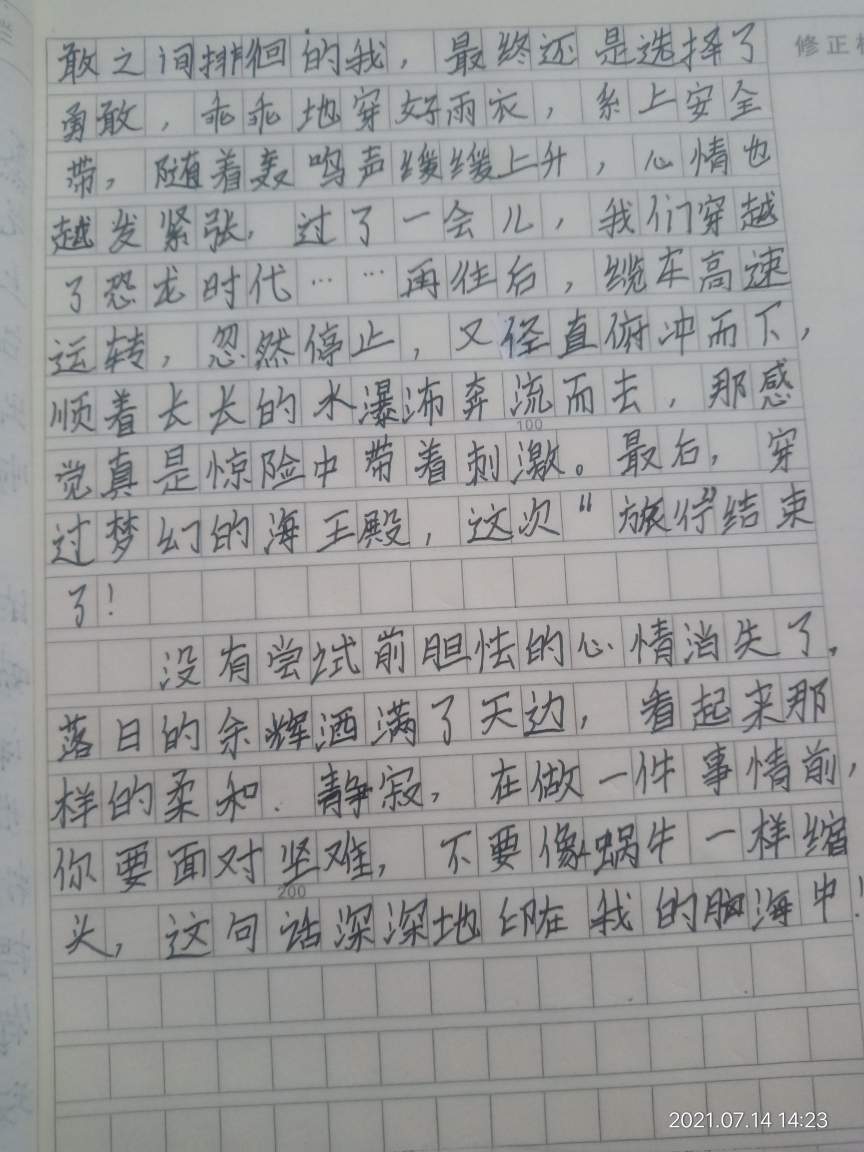 敢之间排徊的我，最终还是选择了
修正
勇敢，乖乖地穿好雨衣，系上安全
带，随着轰鸣声缓缓上升，心情也
越发紧张，过了一会儿，我们穿越
了恐龙时代……再往后，缆车高速
运转，忽然停止，又径直俯冲而下，
顺着长长的水瀑沛奔流而去，那感
100
觉真是惊险中带着刺激。最后，穿
过梦幻的海王殿，这次“旅行”结束
了！
没有尝试前胆怯的心情消失了。
落日的余辉洒满了天边，看起来那
样的柔和．静寂，在做一件事情前，
你要面对坚难，不要像蜗牛一样缩
200
头，这句话深深地印在我的脑海中！
2021.07.14 14:23